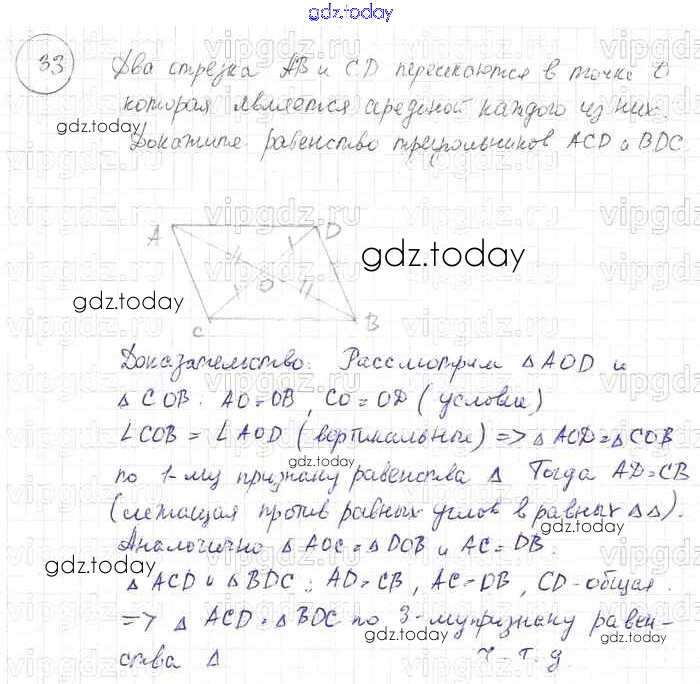 gdz.today
33
Два отрезка AB и CD пересекаются в точке O
которая является срединой каждого из них.
Докажите равенство треугольников ACD и BDC
gdz.today
A D
gdz.today
O
gdz.today
C B
Доказательство: Рассмотрим △AOD и
△COB. AO=OB, CO=OD (условие)
∠COB = ∠AOD (вертикальные) => △AOD=△COB
gdz.today
по 1-му признаку равенства △ Тогда AD=CB
(лежащая против равных углов в равных △△).
gdz.today
Аналогично △AOC=△DOB и AC=DB.
gdz.today
△ACD и △BDC: AD=CB, AC=DB, CD-общая.
=> △ACD=△BDC по 3-му признаку равен-
gdz.today
ства △ ч.т.д.